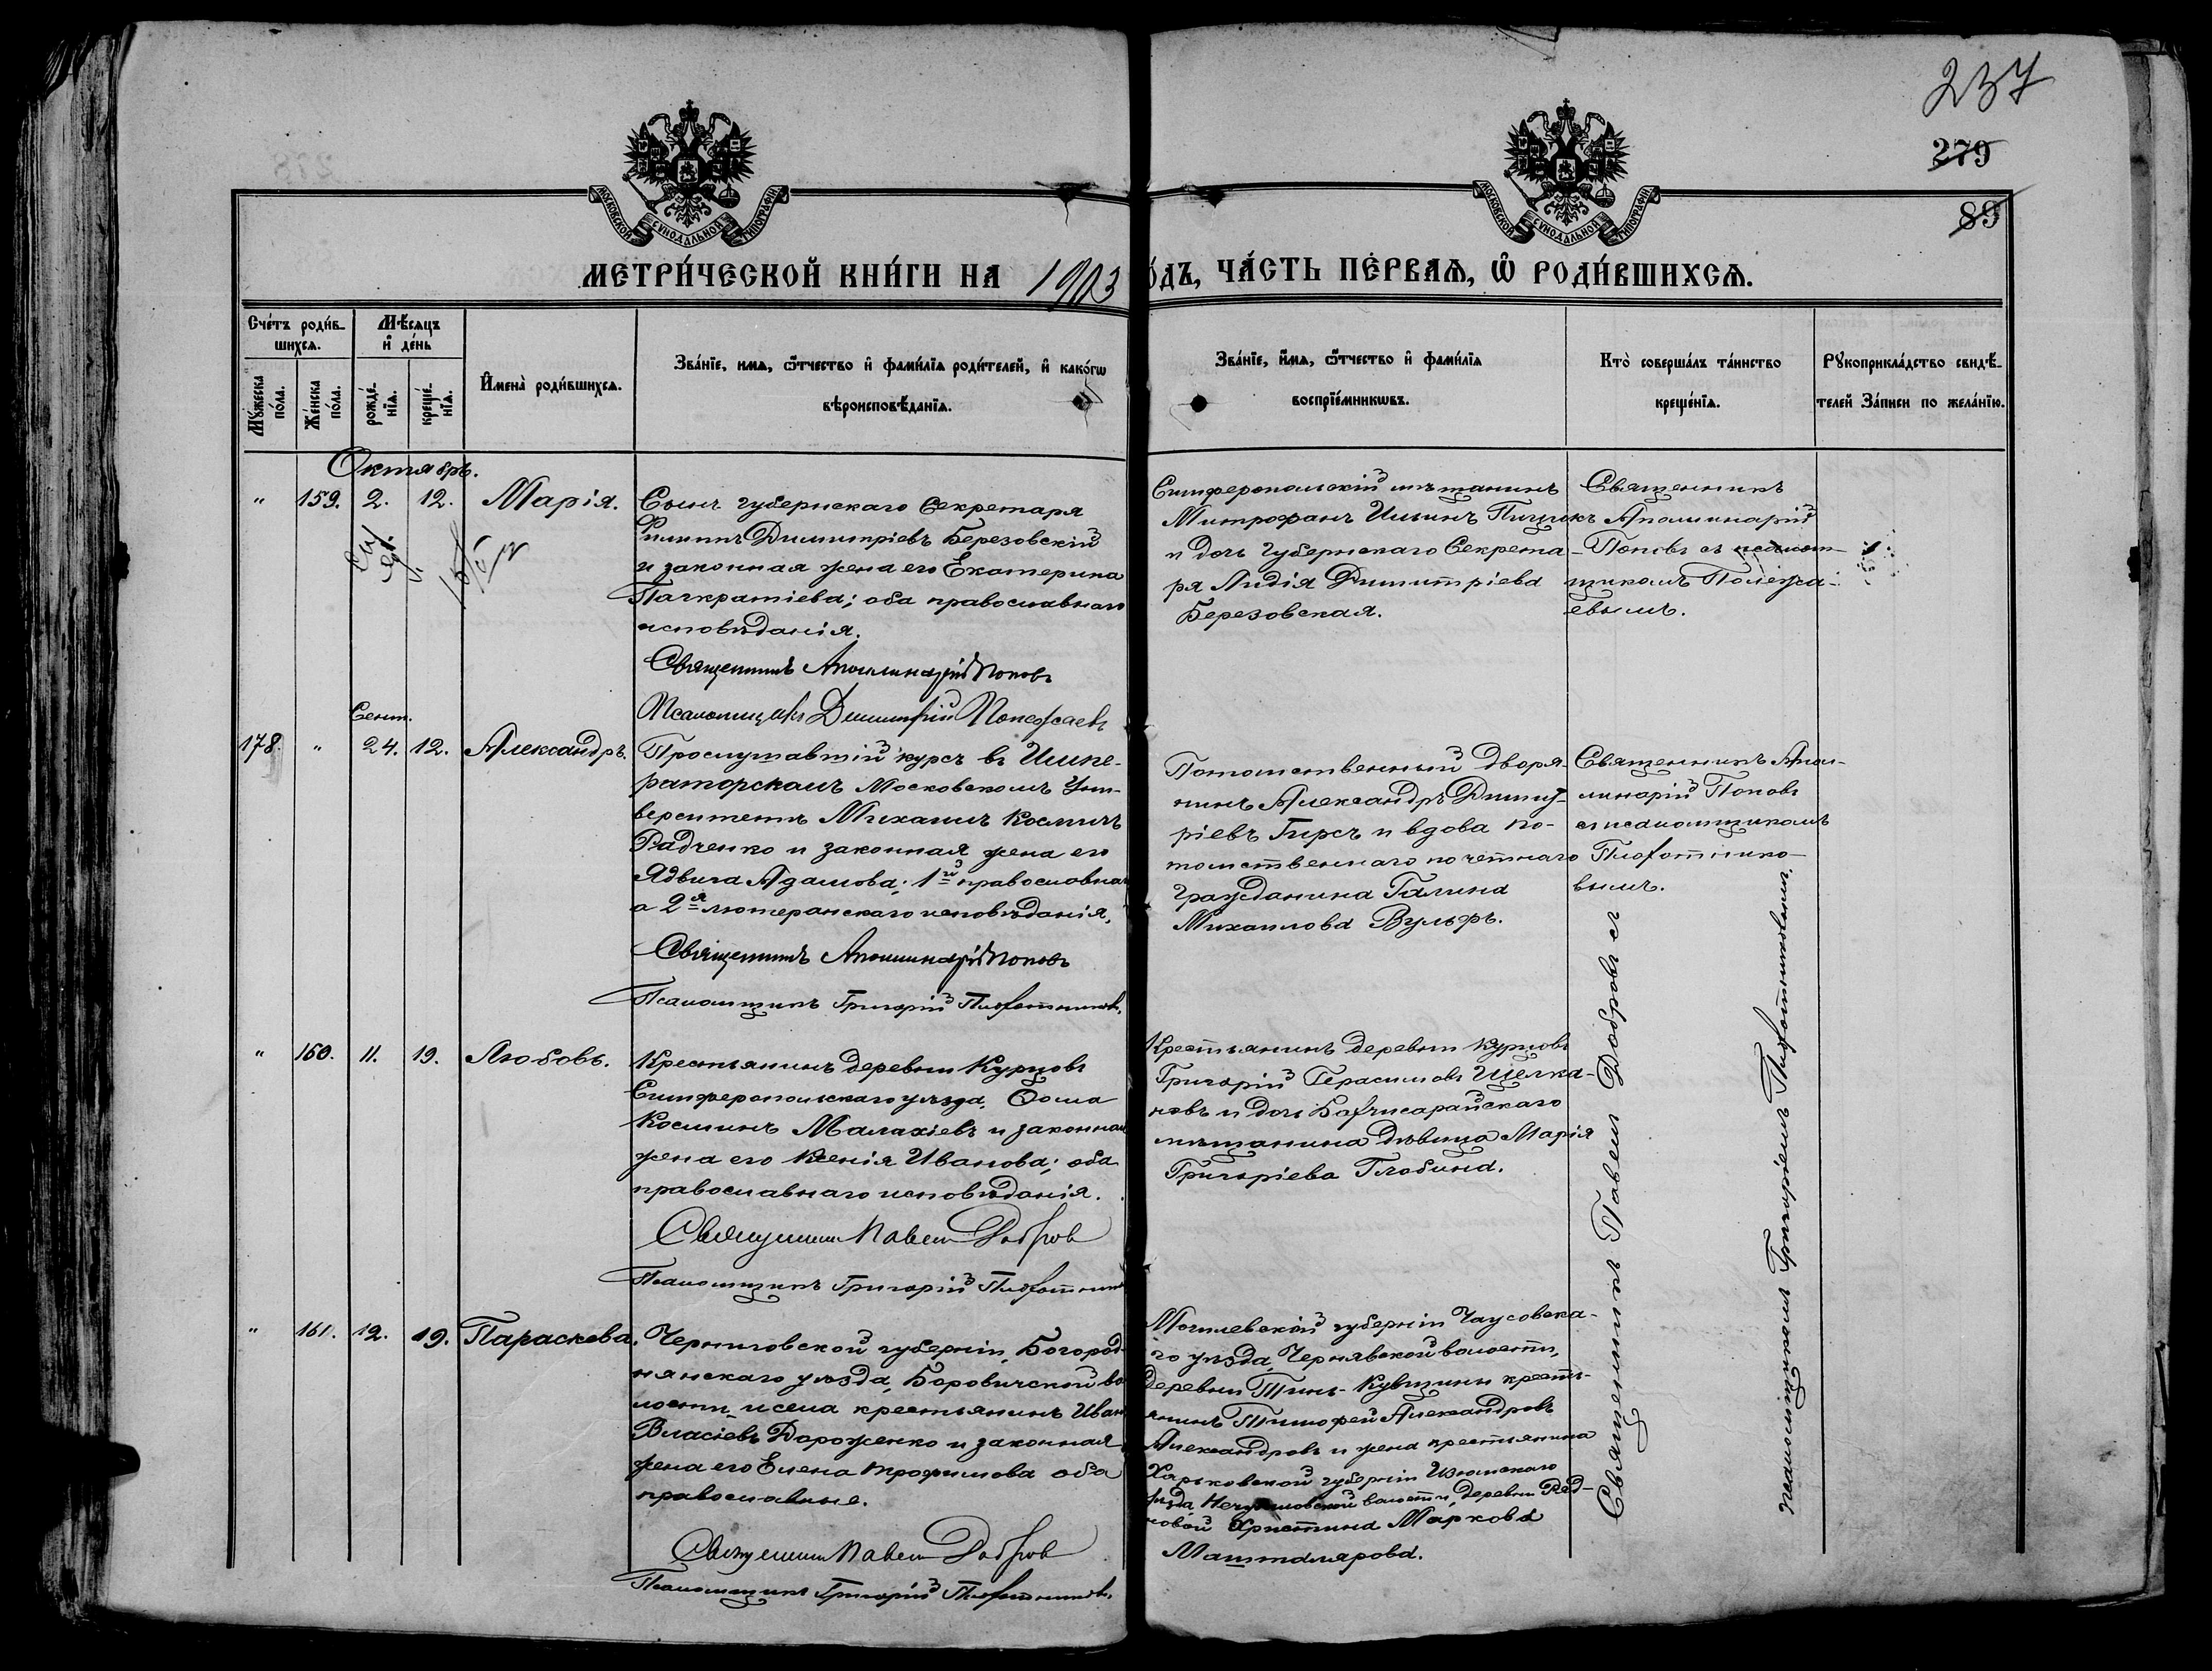 237
279
89
МОСКОВСКОЙ СУНОДАЛЬНОЙ ТИПОГРАФІИ
МОСКОВСКОЙ СУНОДАЛЬНОЙ ТИПОГРАФІИ
МЕТРИ́ЧЕСКОЙ КНИ́ГИ НА 1903
О́ДЪ, ЧА́СТЬ ПЕ́РВАѦ, Ѿ РОДИ́ВШИХСѦ.
Сче́тъ роди́в-
шихсѧ.
Мѣ́сѧцъ
и҆ де́нь
Мꙋ́жеска
по́ла.
Же́нска
по́ла.
рожде́-
нїѧ.
креще́-
нїѧ.
И҆мена̀ роди́вшихсѧ.
Зва́нїе, имѧ, ѻ҆́тчество и҆ фами́лїѧ роди́телей, и҆ како́гѡ
вѣроисповѣ́данїѧ.
Зва́нїе, и҆́мѧ, ѻ҆́тчество и҆ фами́лїѧ
воспрїе́мникѡвъ.
Кто̀ соверша́лъ та́инство
креще́нїѧ.
Рꙋкоприкла́дство свидѣ́-
телей за́писи по жела́нїю.
Октябрь.
" 159. 2. 12. Марія.
Сынъ губернскаго Секретаря
Филиппъ Димитріевъ Березовскій
и законная жена его Екатерина
Панкратіева; оба православнаго
исповѣданія.
Священникъ Аполлинарій Поповъ
Псаломщикъ Димитрій Полежаевъ
Симферопольскій мѣщанинъ
Митрофанъ Ильинъ
и дочь Губернскаго Секрета-
ря Лидія Димитріева
Березовская.
Священникъ
Аполинарій
Поповъ съ псалом-
щикомъ Полежа-
евымъ.
Сент.
178. " 24. 12. Александръ.
Прослушавшій курсъ въ Импе-
раторскомъ Московскомъ Уни-
верситетѣ Михаилъ Космичъ
Радченко и законная жена его
Ядвига Адамова; 1й православна
а 2я лютеранскаго исповѣданія.
Священникъ Аполлинарій Поповъ
Псаломщикъ Григорій Плохотниковъ.
Потомственный дворя-
нинъ Александръ Димит-
ріевъ Гирсъ и вдова по-
томственнаго почетнаго
гражданина Галина
Михаилова Вульфъ.
Священникъ Апол-
линарій Поповъ
съ псаломщикомъ
Плохотнико-
вымъ.
" 160. 11. 19. Любовь.
Крестьянинъ деревни Курцовъ
Симферопольскаго уѣзда, Ѳома
Косминъ Малахіевъ и законная
жена его Ксенія Иванова; оба
православнаго исповѣданія.
Священникъ Павелъ Добровъ
Псаломщикъ Григорій Плохотник
Крестьянинъ деревни Курцовъ
Григорій Герасимовъ Щелка-
новъ и дочь Бахчисарайскаго
мѣщанина дѣвица Марія
Григоріева Глобина.
" 161. 12. 19. Параскева.
Черниговской губерніи, Богород-
нянскаго уѣзда, Боровичской во
лости и села крестьянинъ Иван
Власіевъ Дороженко и законная
жена его Елена Трофимова оба
православные.
Священникъ Павелъ Добровъ
Псаломщикъ Григорій Плохотниковъ.
Могилевской губерніи Чаусовска-
го уѣзда, Чернявской волости,
деревни кресть-
янинъ Тимофей Александровъ
Александровъ и жена крестьянина
Харьковской губерніи Изюмскаго
уѣзда, волости, деревни Рад-
ковой Христина Маркова
Машталярова.
Священникъ Павелъ Добровъ съ
псаломщикомъ Григоріемъ Плохотниковымъ.